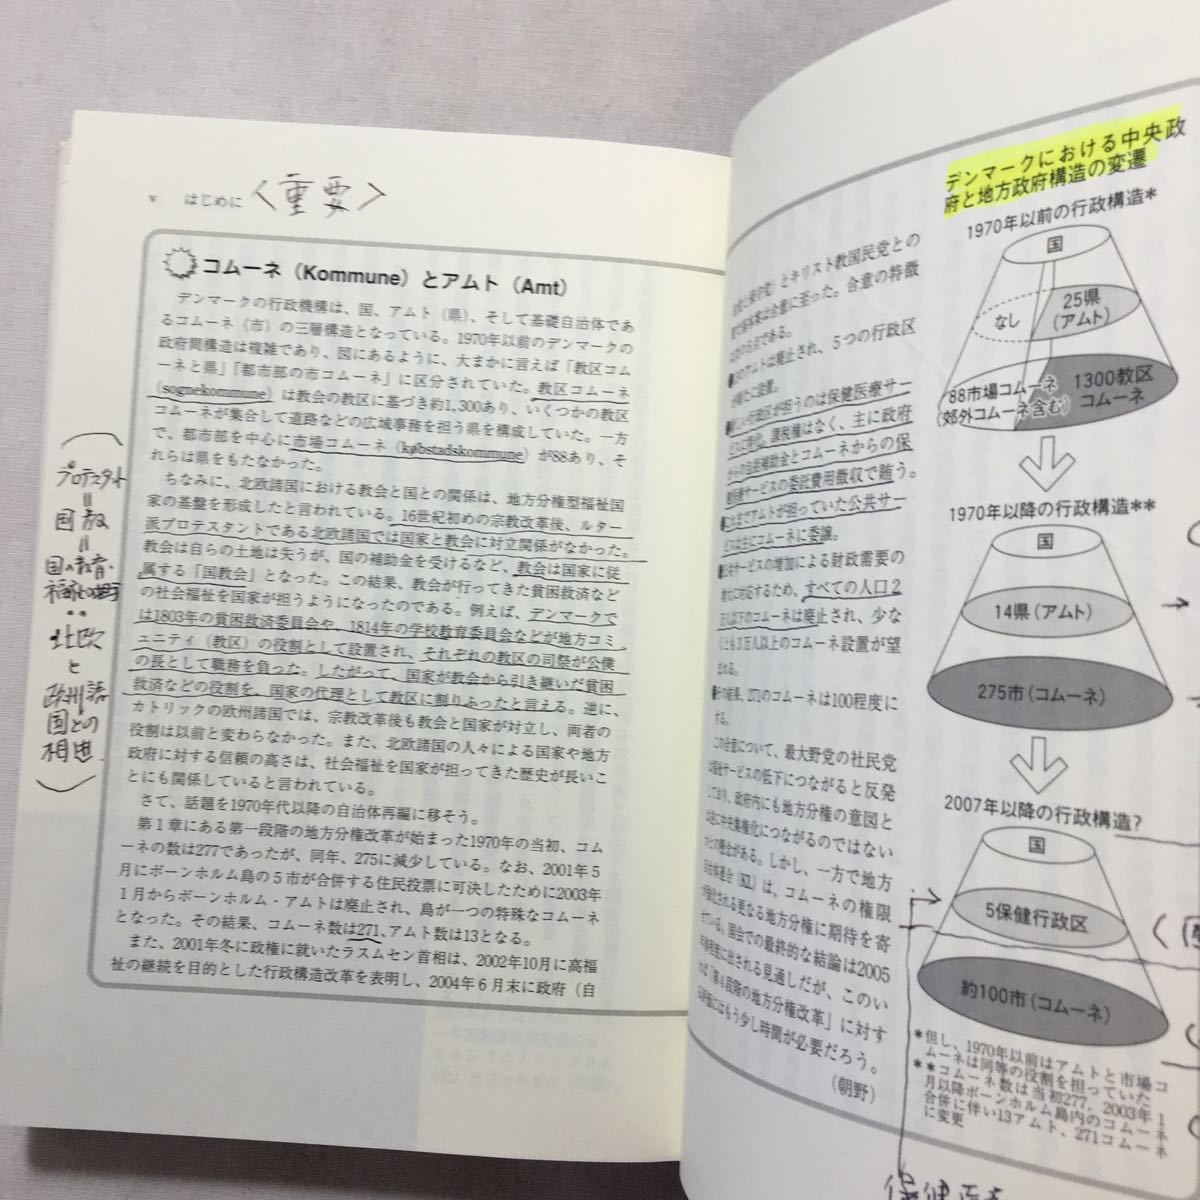 v はじめに 〈重要〉
コムーネ（Kommune）とアムト（Amt）
デンマークの行政機構は、国、アムト（県）、そして基礎自治体であ
るコムーネ（市）の三層構造となっている。1970年以前のデンマークの
政府間構造は複雑であり、図にあるように、大まかに言えば「教区コム
ーネと県」「都市部の市コムーネ」に区分されていた。教区コムーネ
（sognekommune）は教会の教区に基づき約1,300あり、いくつかの教区
コムーネが集合して道路などの広域事務を担う県を構成していた。一方
で、都市部を中心に市場コムーネ（købstadskommune）が88あり、そ
れらは県をもたなかった。
ちなみに、北欧諸国における教会と国との関係は、地方分権型福祉国
家の基盤を形成したと言われている。16世紀初めの宗教改革後、ルター
派プロテスタントである北欧諸国では国家と教会に対立関係がなかった。
教会は自らの土地は失うが、国の補助金を受けるなど、教会は国家に従
属する「国教会」となった。この結果、教会が行ってきた貧困救済など
の社会福祉を国家が担うようになったのである。例えば、デンマークで
は1803年の貧困救済委員会や、1814年の学校教育委員会などが地方コミ
ュニティ（教区）の役割として設置され、それぞれの教区の司祭が公僕
の長として職務を負った。したがって、国家が教会から引き継いだ貧困
救済などの役割を、国家の代理として教区に割りふったと言える。逆に、
カトリックの欧州諸国では、宗教改革後も教会と国家が対立し、両者の
役割は以前と変わらなかった。また、北欧諸国の人々による国家や地方
政府に対する信頼の高さは、社会福祉を国家が担ってきた歴史が長いこ
とにも関係していると言われている。
さて、話題を1970年代以降の自治体再編に移そう。
第１章にある第一段階の地方分権改革が始まった1970年の当初、コム
ーネの数は277であったが、同年、275に減少している。なお、2001年５
月にボーンホルム島の５市が合併する住民投票に可決したために2003年
１月からボーンホルム・アムトは廃止され、島が一つの特殊なコムーネ
となった。その結果、コムーネ数は271、アムト数は13となる。
また、2001年冬に政権に就いたラスムセン首相は、2002年10月に高福
祉の継続を目的とした行政構造改革を表明し、2004年６月末に政府（自
プロテスタント
＝
国教
＝
国の教育・
北欧
と
欧州諸
国との
相違
とキリスト教国民党との
合意に至った。合意の特徴
は廃止され、５つの行政区
設置。
行政区が担うのは保健医療サー
課税権はなく、主に政府
補助金とコムーネからの保
サービスの委託費用徴収で賄う。
までアムトが担っていた公共サー
ビスは主にコムーネに委譲。
サービスの増加による財政需要の
に対応するため、すべての人口２
万人以下のコムーネは廃止され、少な
くとも３万人以上のコムーネ設置が望
まれる。
その結果、271のコムーネは100程度に
する。
この合意について、最大野党の社民党
サービスの低下につながると反発
しており、政府内にも地方分権の意図と
は逆に中央集権化につながるのではない
かとの懸念がある。しかし、一方で地方
自治体連合（KL）は、コムーネの権限
が強化される更なる地方分権に期待を寄
せている。国会での最終的な結論は2005
に出される見通しだが、このい
わば「第４段階の地方分権改革」に対す
る評価にはもう少し時間が必要だろう。
（朝野）
デンマークにおける中央政
府と地方政府構造の変遷
1970年以前の行政構造*
国
なし
25県
（アムト）
88市場コムーネ
（郊外コムーネ含む）
1300教区
コムーネ
1970年以降の行政構造**
国
14県（アムト）
275市（コムーネ）
2007年以降の行政構造？
国
5保健行政区
約100市（コムーネ）
*但し、1970年以前はアムトと市場コ
ムーネは同等の役割を担っていた
**コムーネ数は当初277、2003年1
月以降ボーンホルム島内のコムーネ
合併に伴い13アムト、271コムーネ
に変更